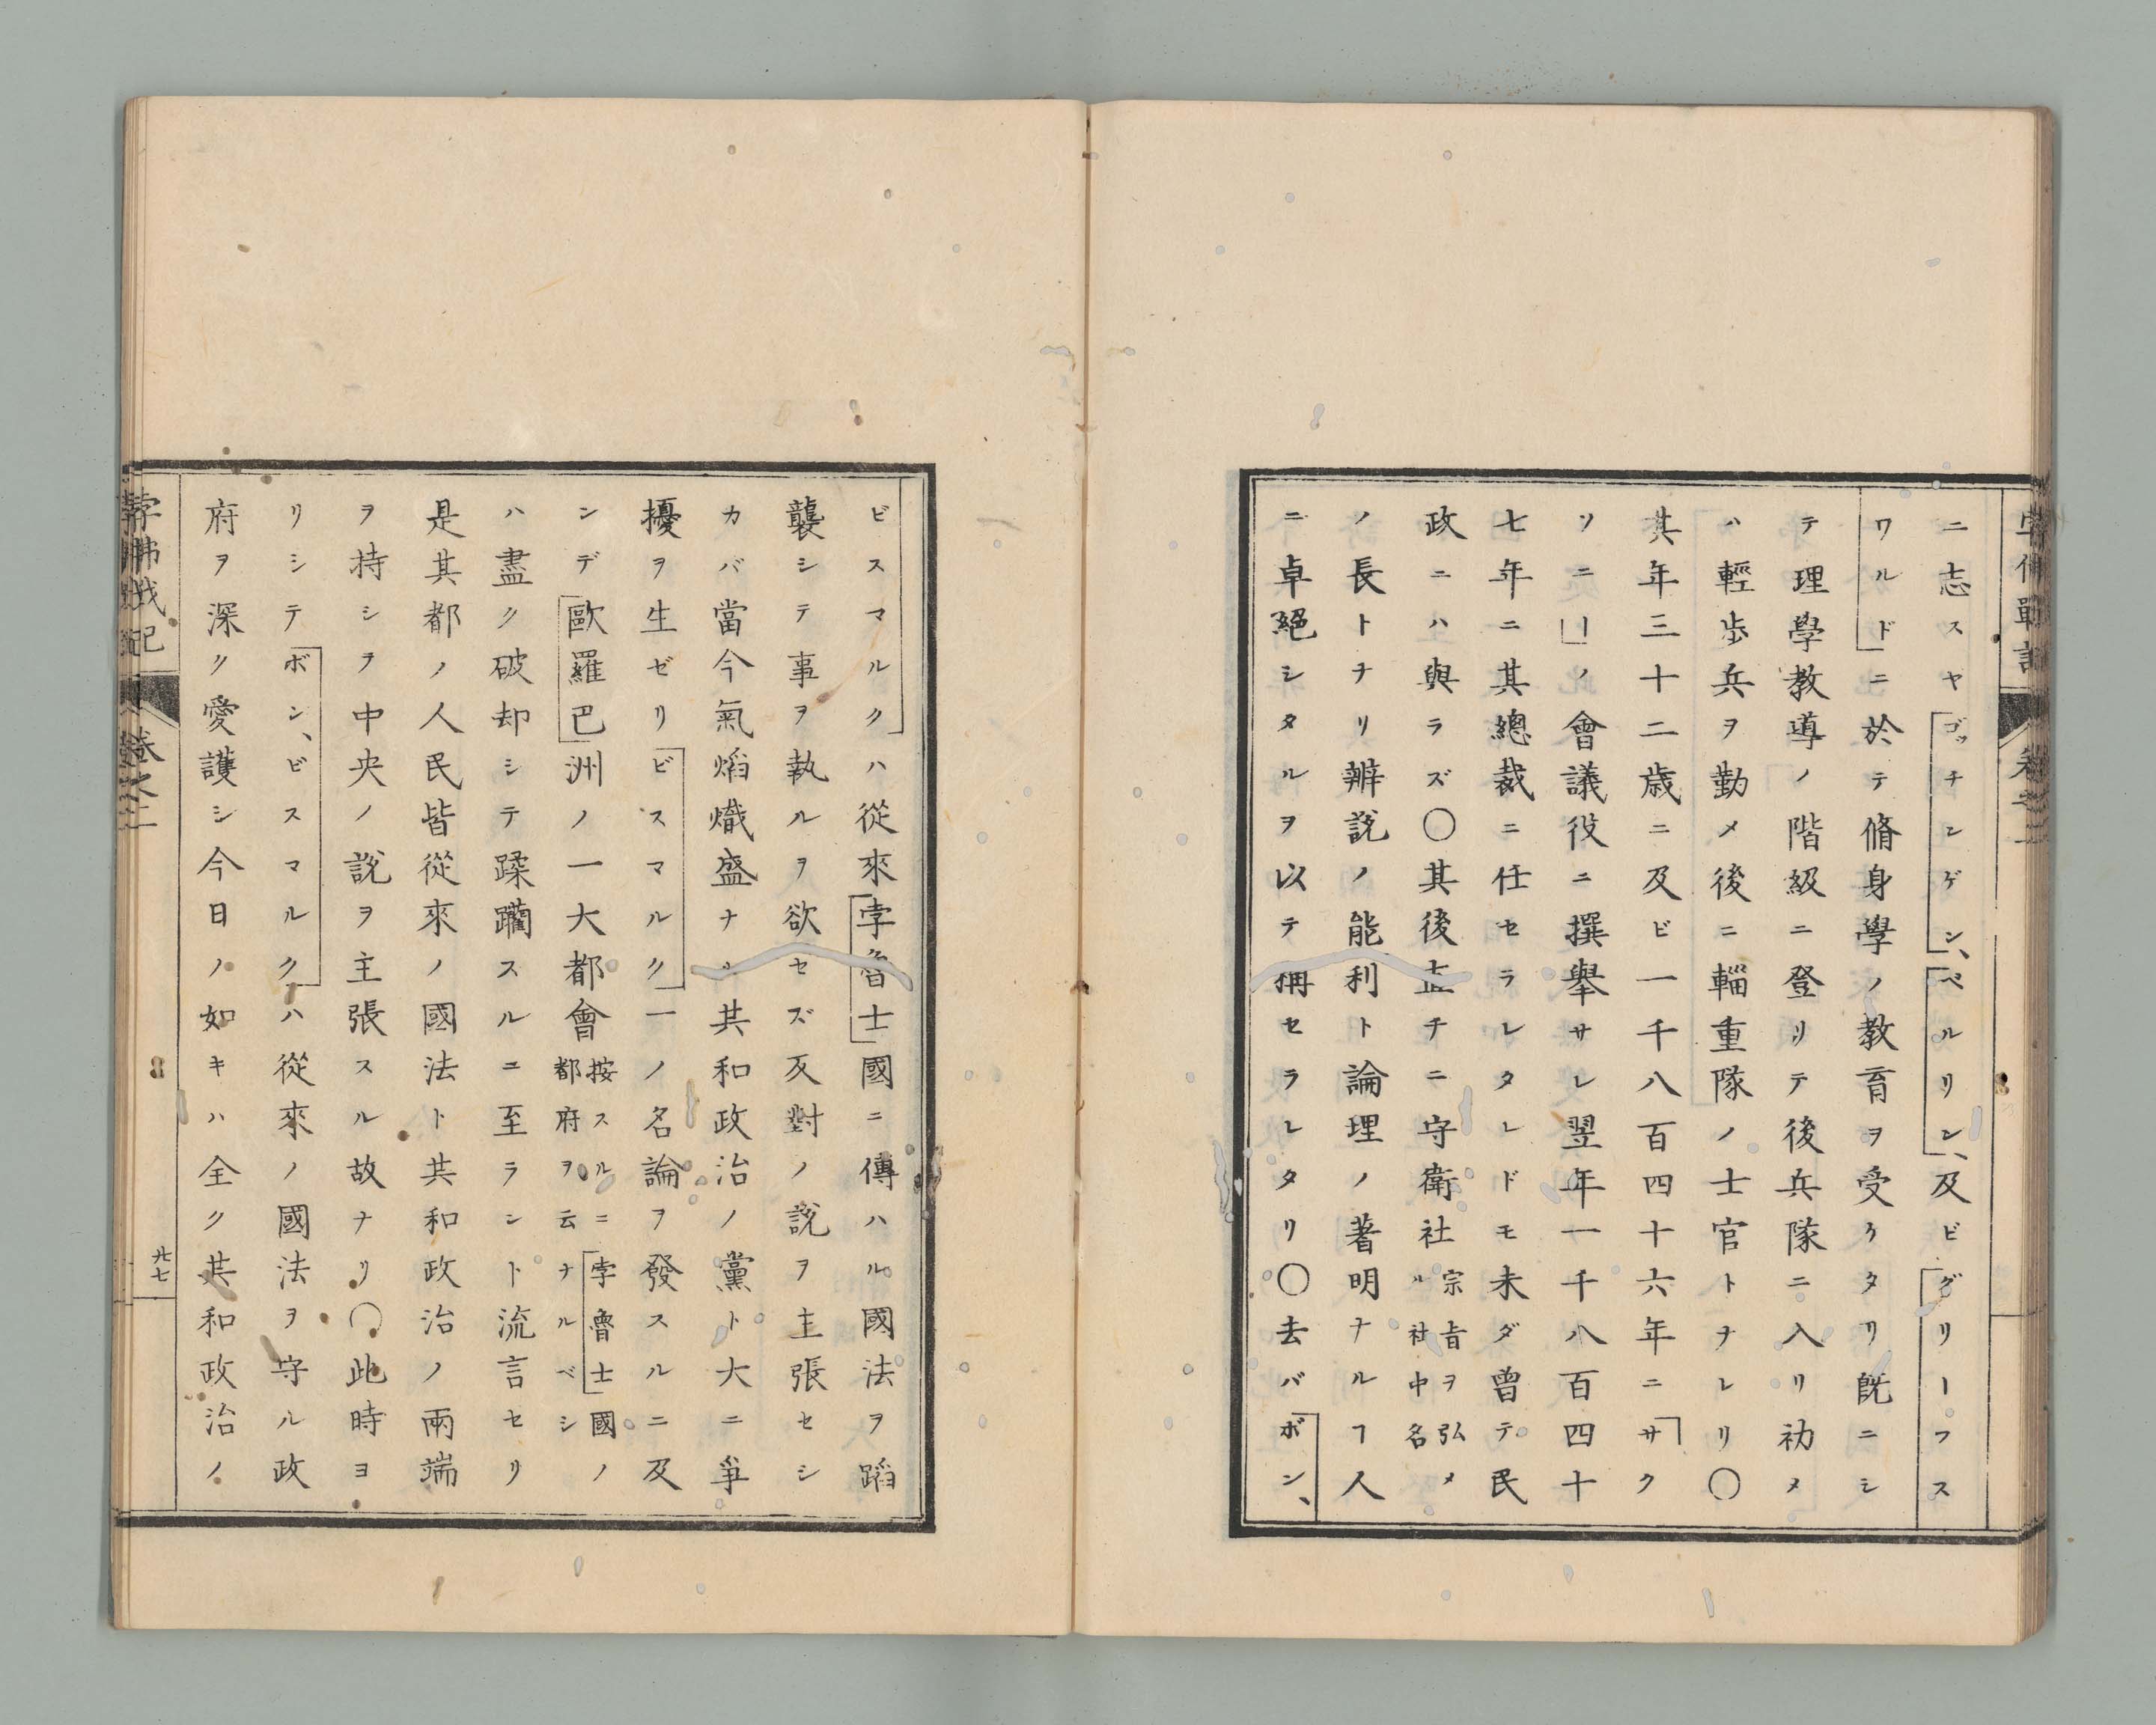 孛佛戰記 卷之二
ニ志スヤゴッチンゲン、ベルリン、及ビグリーフス
ワルドニ於テ脩身學ノ教育ヲ受ケタリ既ニシ
テ理學教導ノ階級ニ登リテ後兵隊ニ入リ初メ
ハ輕歩兵ヲ勤メ後ニ輜重隊ノ士官トナレリ〇
其年三十二歳ニ及ビ一千八百四十六年ニサク
ソニーノ會議役ニ撰擧サレ翌年一千八百四十
七年ニ其總裁ニ任セラレタレドモ未ダ曾テ民
政ニハ與ラズ〇其後直チニ守衛社宗旨ヲ弘メ
ル社中名
ノ長トナリ辨説ノ能利ト論理ノ著明ナルヿ人
ニ卓絕シタルヲ以テ稱セラレタリ〇去バボン、
ビスマルクハ從來孛魯士國ニ傳ハル國法ヲ蹈
襲シテ事ヲ執ルヲ欲セズ反對ノ説ヲ主張セシ
カバ當今氣焰熾盛ナル共和政治ノ黨ト大ニ爭
擾ヲ生ゼリビスマルク一ノ名論ヲ發スルニ及
ンデ歐羅巴洲ノ一大都會按スルニ孛魯士國ノ
都府ヲ云ナルベシ
ハ盡ク破却シテ蹂躪スルニ至ラント流言セリ
是其都ノ人民皆從來ノ國法ト共和政治ノ兩端
ヲ持シラ中央ノ説ヲ主張スル故ナリ〇此時ヨ
リシテボン、ビスマルクハ從來ノ國法ヲ守ル政
府ヲ深ク愛護シ今日ノ如キハ全ク共和政治ノ
孛佛戰記 卷之二 廿七